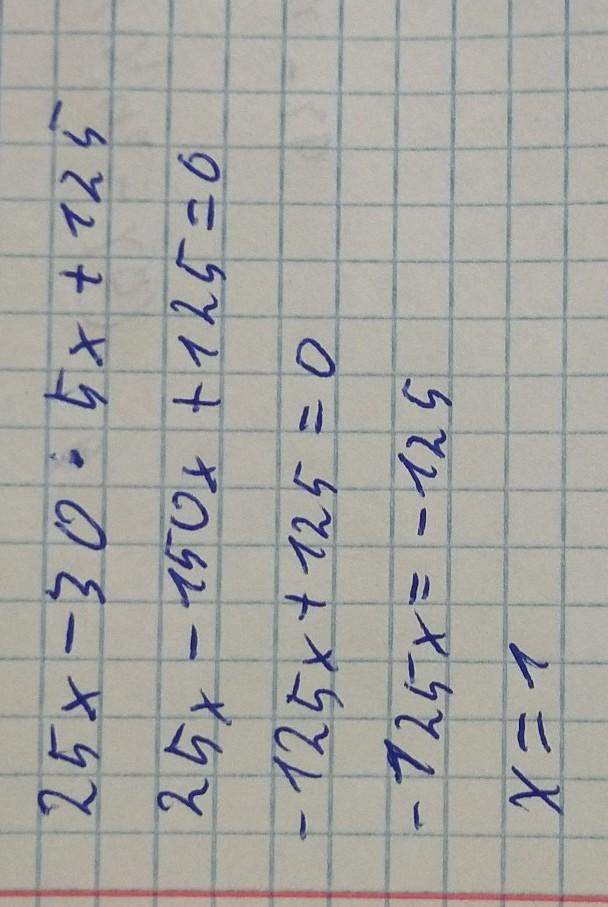 25x-30·5x+125
25x-150x+125=0
-125x+125=0
-125x=-125
x=1